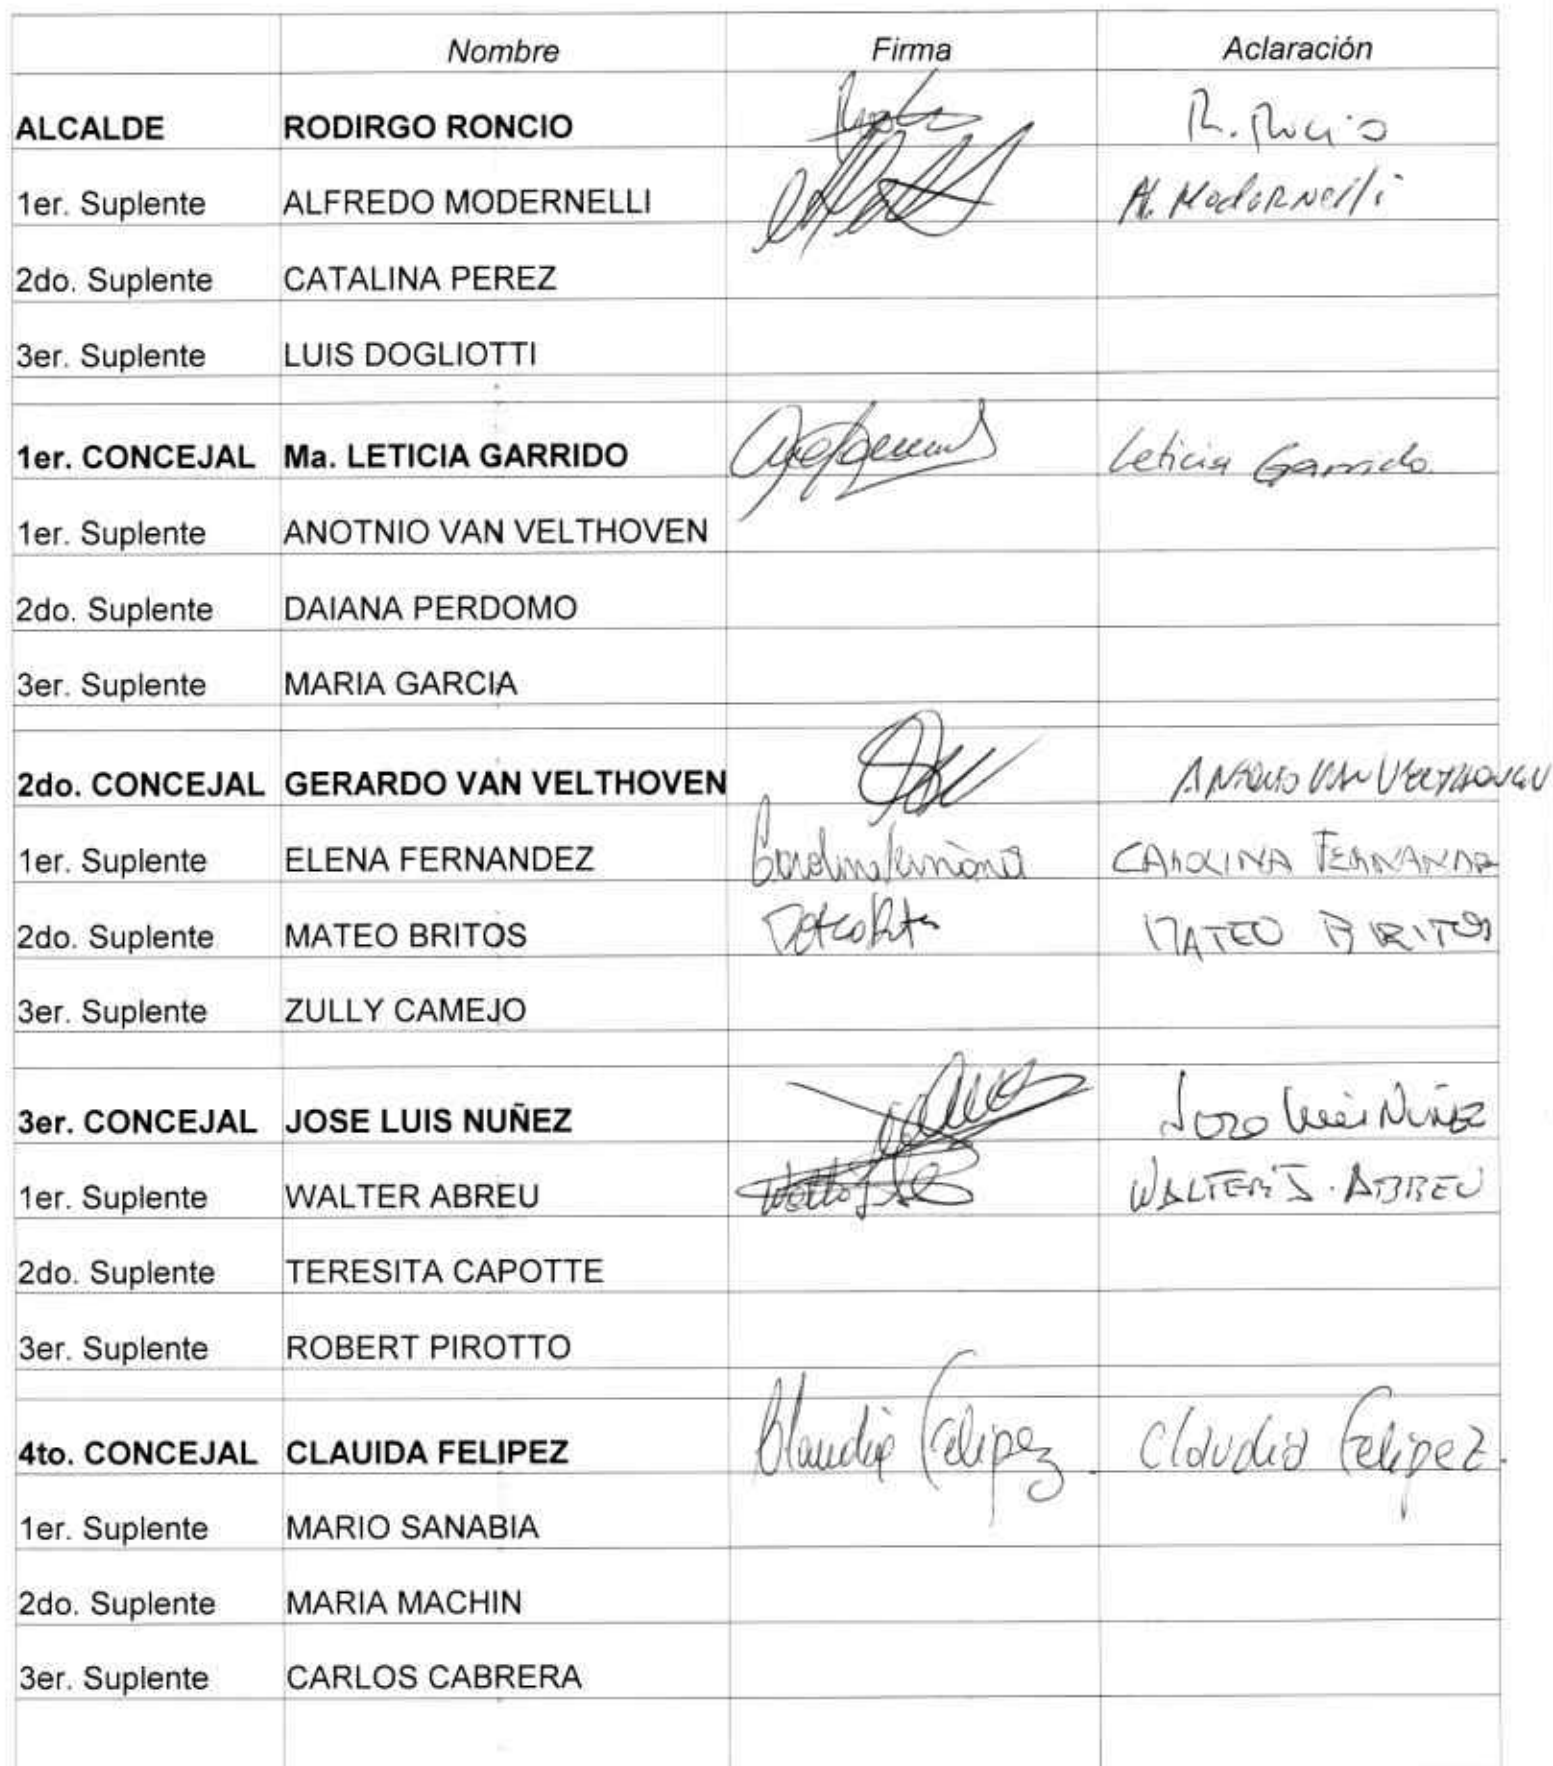 Nombre Firma Aclaración
ALCALDE RODIRGO RONCIO R. Roncio
1er. Suplente ALFREDO MODERNELLI A. Modernelli
2do. Suplente CATALINA PEREZ
3er. Suplente LUIS DOGLIOTTI
1er. CONCEJAL Ma. LETICIA GARRIDO Leticia Garrido.
1er. Suplente ANOTNIO VAN VELTHOVEN
2do. Suplente DAIANA PERDOMO
3er. Suplente MARIA GARCIA
2do. CONCEJAL GERARDO VAN VELTHOVEN ANTONIO VAN VELTHOVEN
1er. Suplente ELENA FERNANDEZ CAROLINA
2do. Suplente MATEO BRITOS MATEO BRITOS
3er. Suplente ZULLY CAMEJO
3er. CONCEJAL JOSE LUIS NUÑEZ Jose Luis Nuñez
1er. Suplente WALTER ABREU WALTER J. ABREU
2do. Suplente TERESITA CAPOTTE
3er. Suplente ROBERT PIROTTO
4to. CONCEJAL CLAUIDA FELIPEZ Claudia Felipez. Claudia Felipez.
1er. Suplente MARIO SANABIA
2do. Suplente MARIA MACHIN
3er. Suplente CARLOS CABRERA